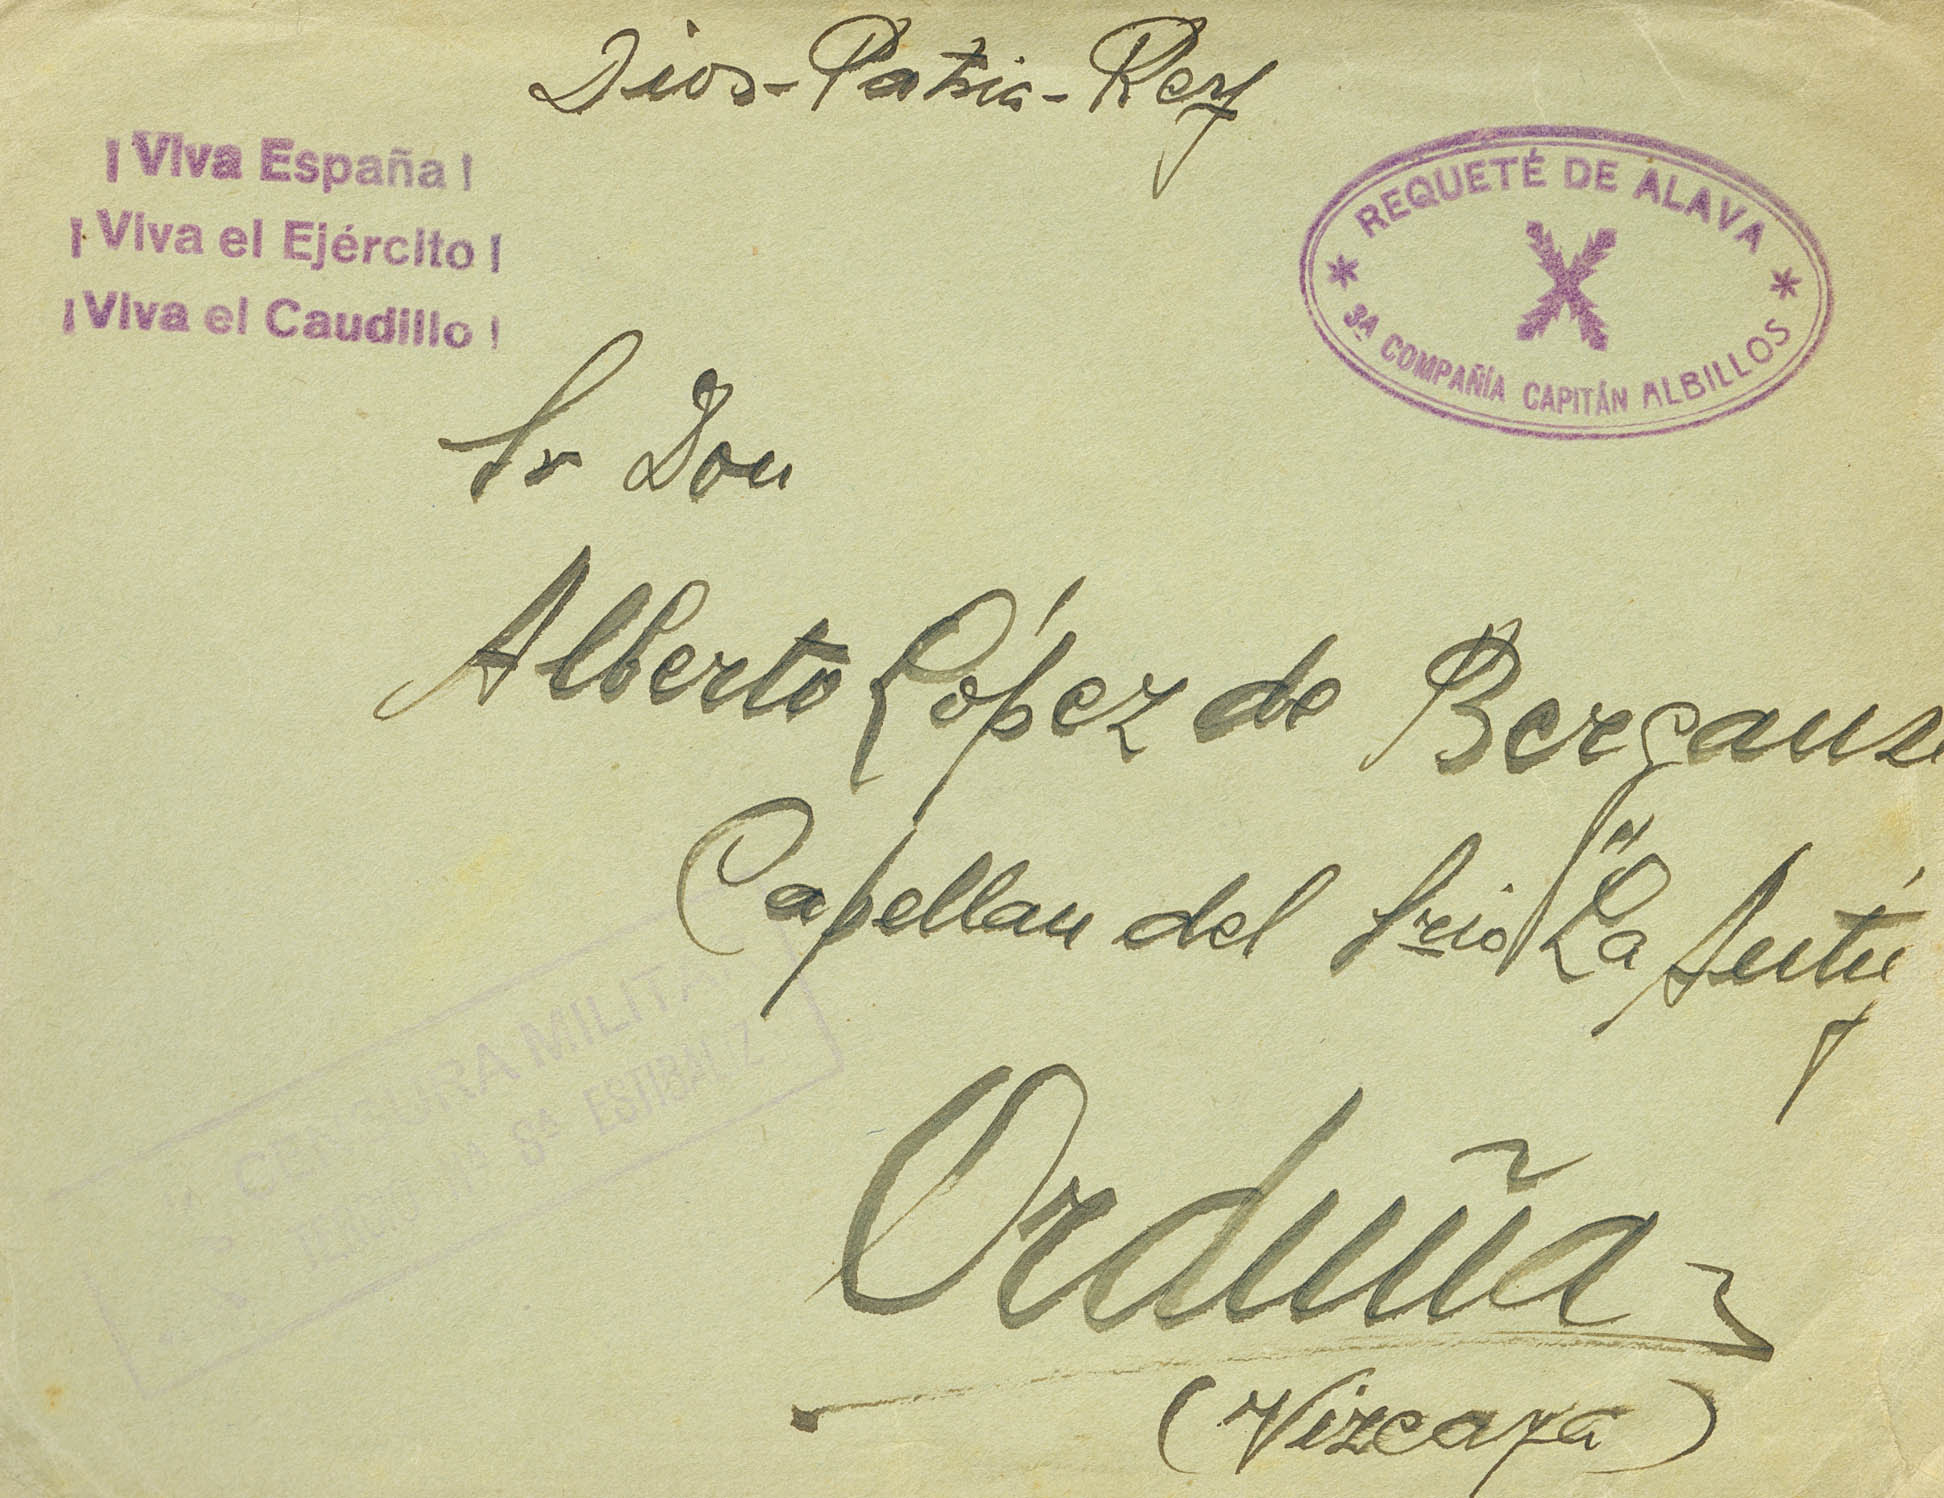 Dios-Patria-Rey
¡Viva España!
¡Viva el Ejército!
¡Viva el Caudillo!
REQUETÉ DE ALAVA
3ª COMPAÑÍA CAPITÁN ALBILLOS
Sr Don
Alberto López de Berganza
Capellan del Srio "La Antig
Orduña
(Vizcaya)
CENSURA MILITAR
TERCIO Nª Sª ESTIBALIZ